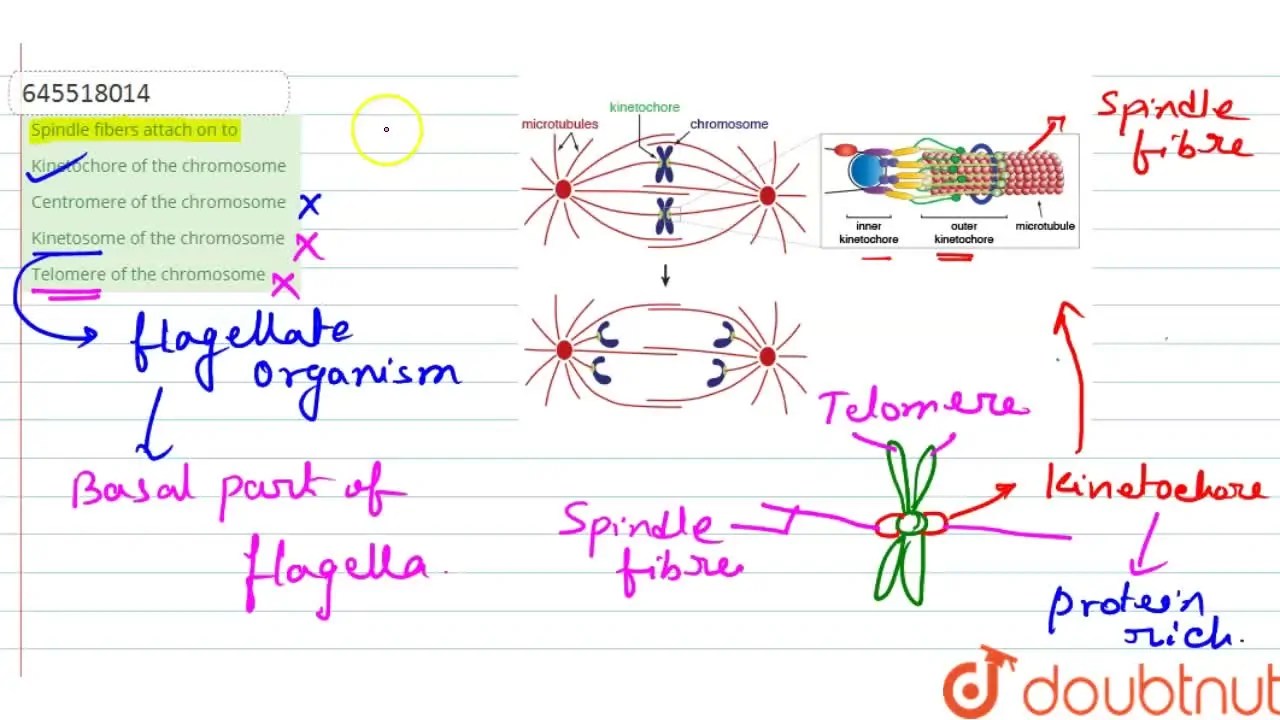 645518014
Spindle fibers attach on to
Kinetochore of the chromosome
Centromere of the chromosome
Kinetosome of the chromosome
Telomere of the chromosome
flagellate
organism
Basal part of
flagella.
kinetochore
microtubules
chromosome
inner
kinetochore
outer
kinetochore
microtubule
Spindle
fibre
Telomere
Spindle
fibre
Kinetochore
protein
rich.
doubtnut